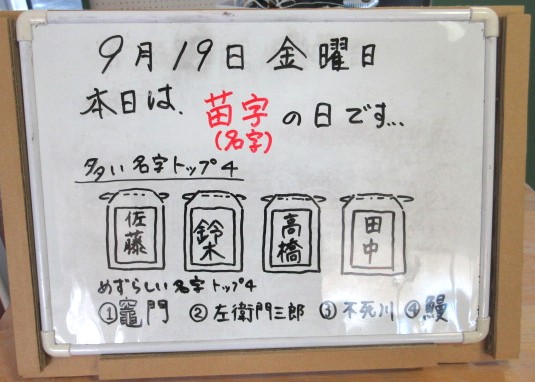 9月19日 金曜日
本日は、苗字の日です...
(名字)
多い名字トップ4
佐藤 鈴木 高橋 田中
めずらしい名字トップ4
①竈門 ②左衛門三郎 ③不死川 ④鰻